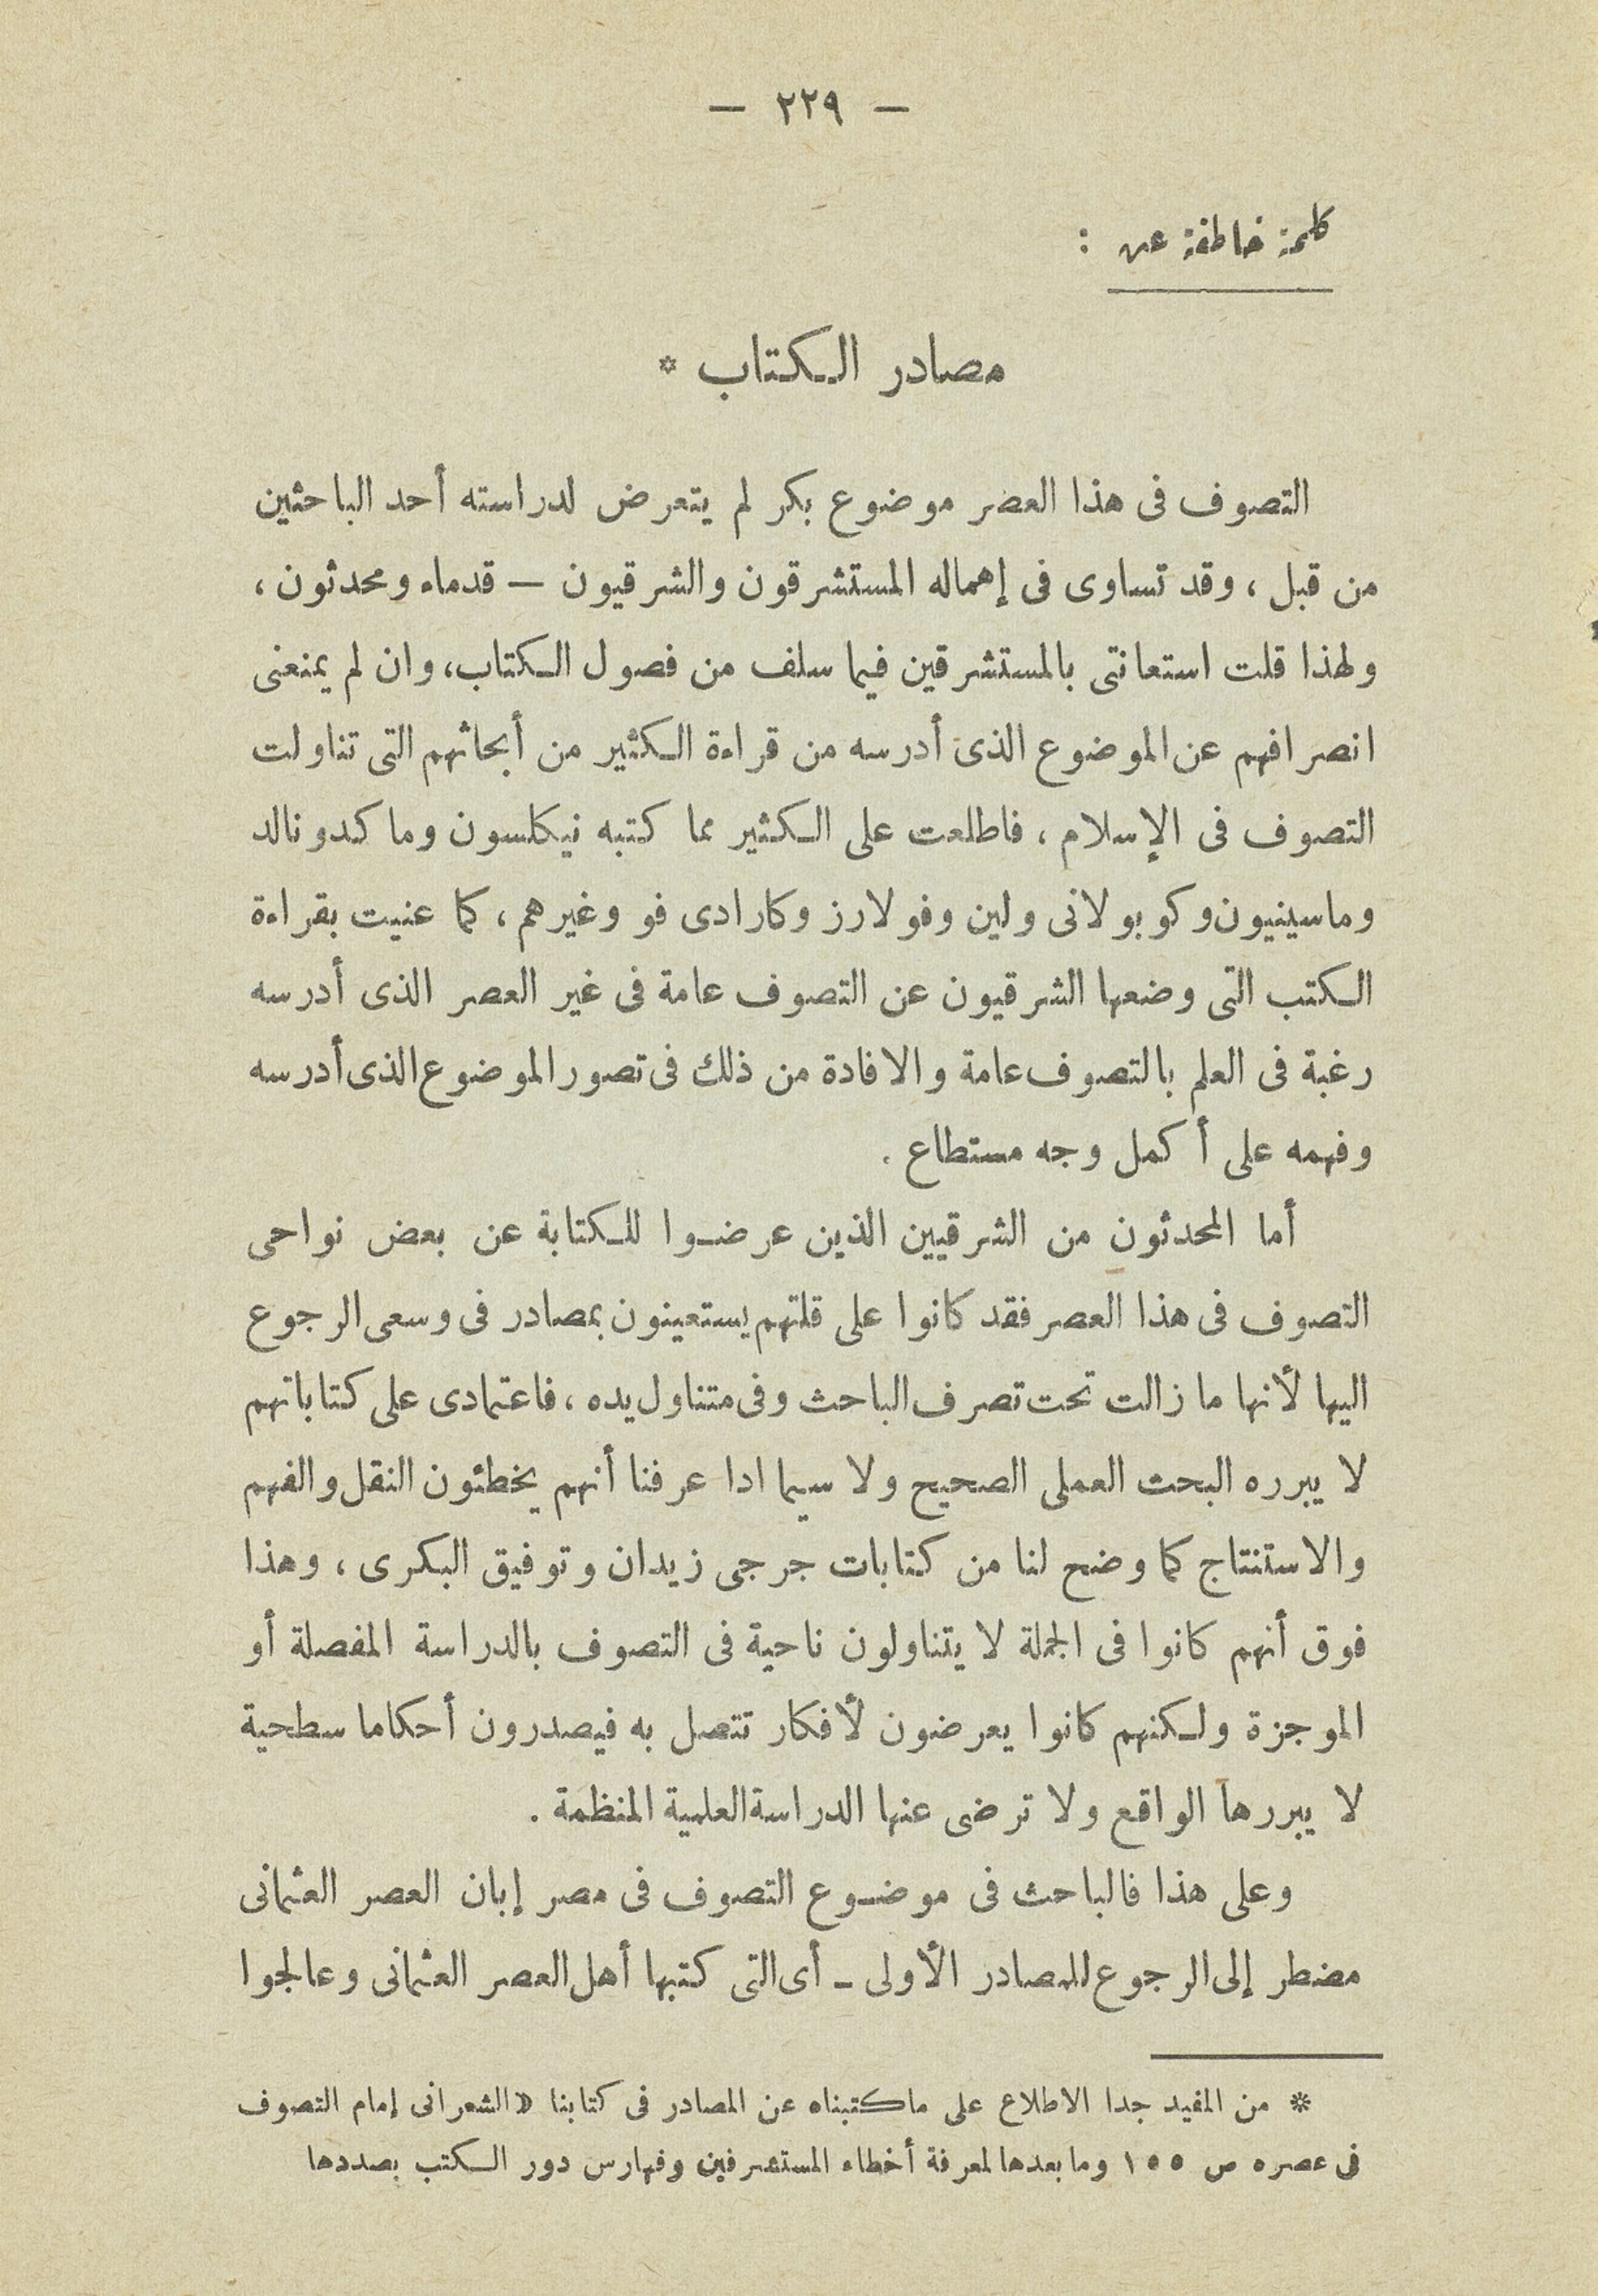 — ٢٢٩ —
كلمة خاطفة عن :
مصادر الكتاب *
التصوف فى هذا العصر موضوع بكر لم يتعرض لدراسته أحد الباحثين
من قبل ، وقد تساوى فى إهماله المستشرقون والشرقيون — قدماء ومحدثون ،
ولهذا قلت استعانتى بالمستشرقين فيما سلف من فصول الكتاب، وان لم يمنعنى
انصرافهم عن الموضوع الذى أدرسه من قراءة الكثير من أبحاثهم التى تناولت
التصوف فى الإسلام ، فاطلعت على الكثير مما كتبه نيكلسون وماكدونالد
وماسينيون وكوبولانى ولين وفولارز وكارادى فو وغيرهم ، كما عنيت بقراءة
الكتب التى وضعها الشرقيون عن التصوف عامة فى غير العصر الذى أدرسه
رغبة فى العلم بالتصوف عامة والافادة من ذلك فى تصور الموضوع الذى أدرسه
وفهمه على أكمل وجه مستطاع .
أما المحدثون من الشرقيين الذين عرضوا للكتابة عن بعض نواحى
التصوف فى هذا العصر فقد كانوا على قلتهم يستعينون بمصادر فى وسعى الرجوع
اليها لأنها ما زالت تحت تصرف الباحث وفى متناول يده ، فاعتمادى على كتاباتهم
لا يبرره البحث العملى الصحيح ولا سيما ادا عرفنا أنهم يخطئون النقل والفهم
والاستنتاج كما وضح لنا من كتابات جرجى زيدان وتوفيق البكرى ، وهذا
فوق أنهم كانوا فى الجملة لا يتناولون ناحية فى التصوف بالدراسة المفصلة أو
الموجزة ولكنهم كانوا يعرضون لأفكار تتصل به فيصدرون أحكاما سطحية
لا يبررها الواقع ولا ترضى عنها الدراسة العلمية المنظمة .
وعلى هذا فالباحث فى موضوع التصوف فى مصر إبان العصر العثمانى
مضطر إلى الرجوع للمصادر الأولى - أى التى كتبها أهل العصر العثمانى وعالجوا
* من المفيد جدا الاطلاع على ماكتبناه عن المصادر فى كتابنا « الشعرانى إمام التصوف
فى عصره ص ١٥٥ وما بعدها لمعرفة أخطاء المستشرقين وفهارس دور الكتب بصددها